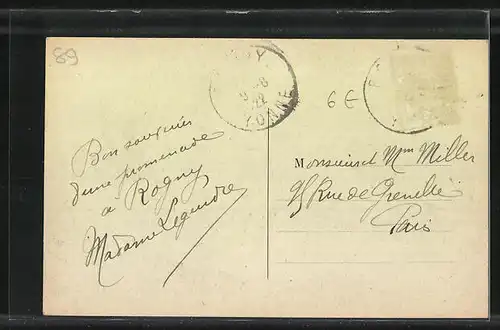 89
ROGNY
9-8
22
YONNE
6 €
Bon souvenir
d'une promenade
à Rogny
Madame Legendre
Monsieur et Mme Miller
Rue de Grenelle
Paris